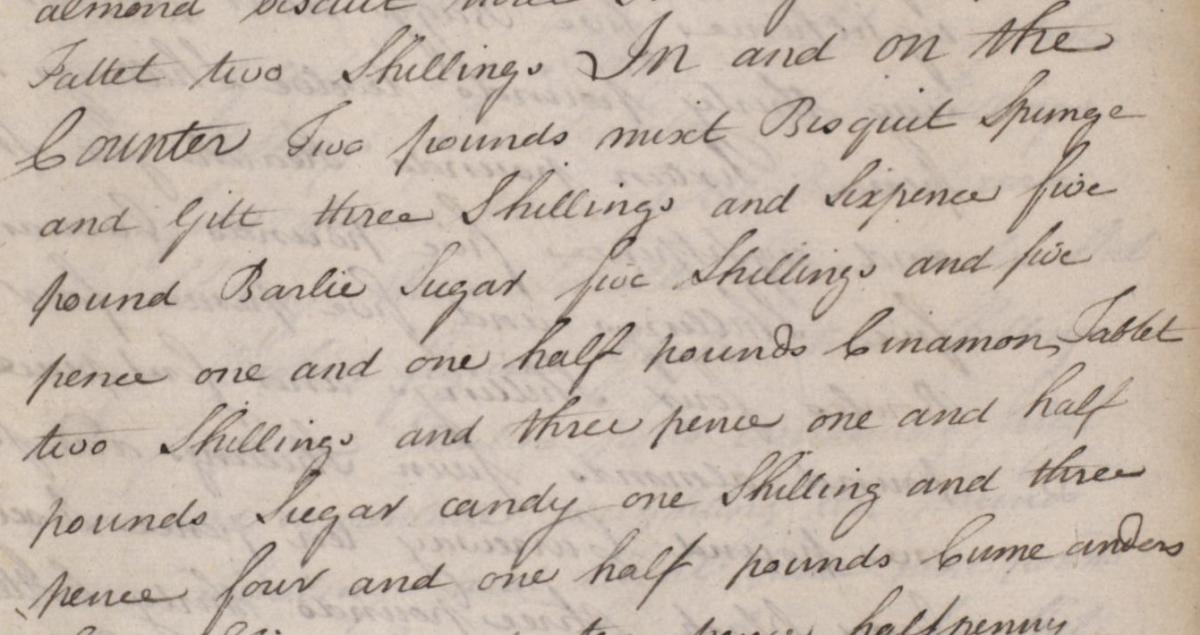 almond biscuit three
Tattet two Shillings In and on the
Counter Two pounds mixt Bisquit Spunge
and Gilt three Shillings and Sixpence five
pound Barlie Sugar five Shillings and five
pence one and one half pounds Cinamon Tablet
two Shillings and three pence one and half
pounds Sugar candy one Shilling and three
pence four and one half pounds Cume anders
pence halfpenny